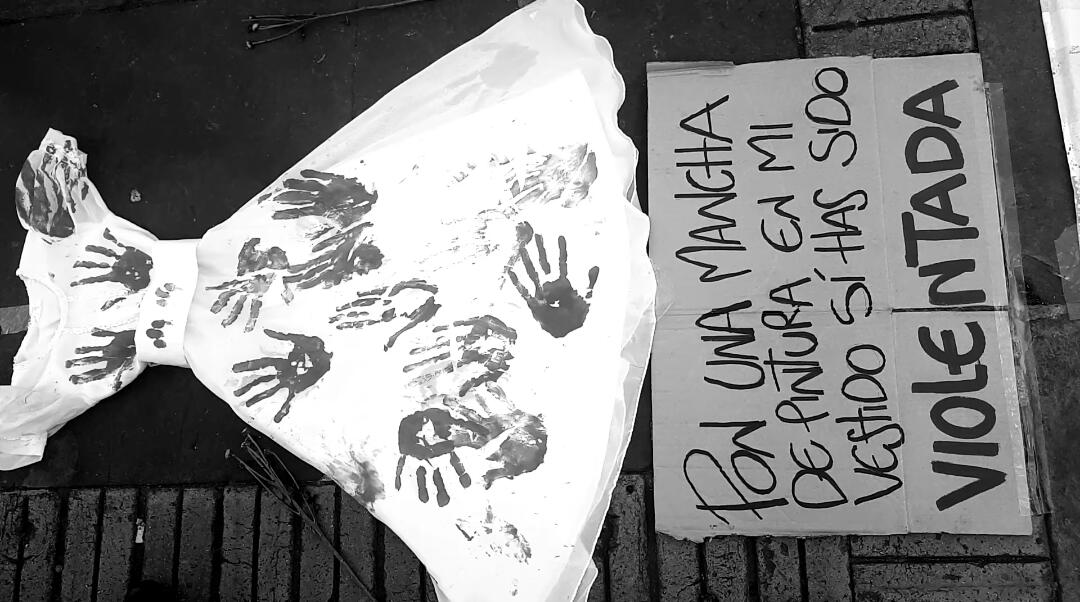 PON UNA MANCHA
DE PINTURA EN MI
VESTIDO SÍ HAS SIDO
VIOLENTADA